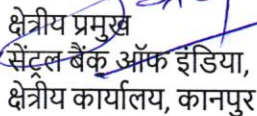 क्षेत्रीय प्रमुख
सेंट्रल बैंक ऑफ इंडिया,
क्षेत्रीय कार्यालय, कानपुर